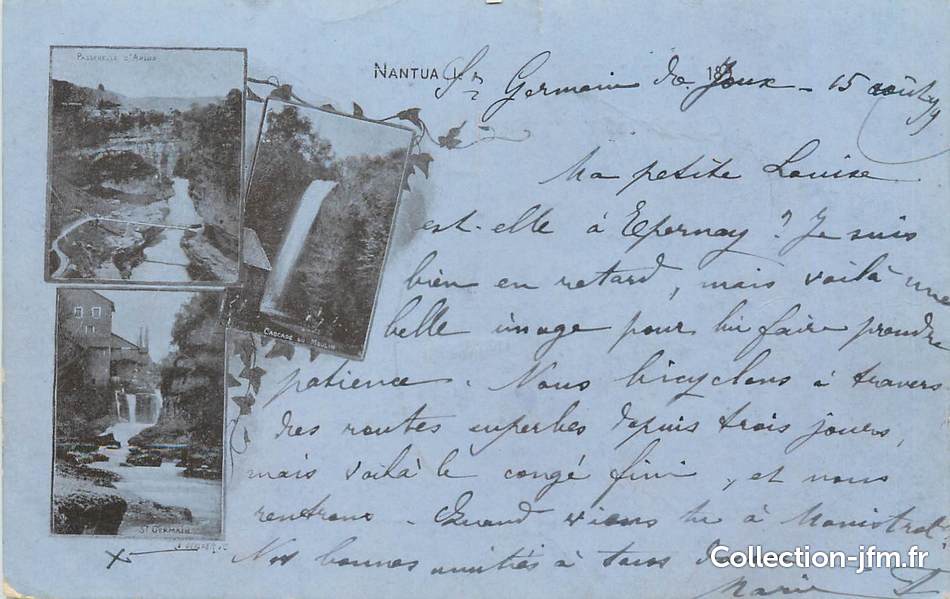 PASSERELLE D'ARLOD
NANTUA, 189
St Germain de Joux - 15 août 99
Ma petite Louise
est-elle à Epernay ? Je suis
bien en retard, mais voilà une
belle image pour lui faire prendre
patience. Nous bicyclons à travers
des routes superbes depuis trois jours,
mais voilà le congé fini, et nous
rentrons. Quand viens tu à Monistrol
Nos bonnes amitiés à tous
Marie
CASCADE DU MOULIN
ST GERMAIN
Collection-jfm.fr